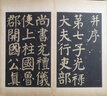 并序
第七子光祿
大夫行吏部
尚書充禮儀
使上柱國魯
郡開國公真